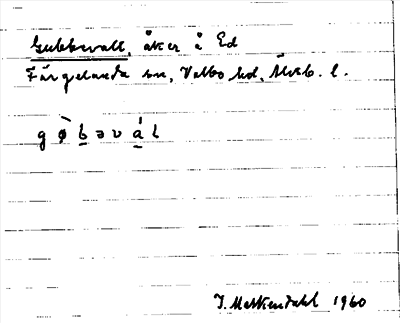 Gubbevall, åker å Ed
Färgelanda sn, Valbo hd, Älvsb. l.
gø̀b̲əvá̲l
J. Mattendahl 1960